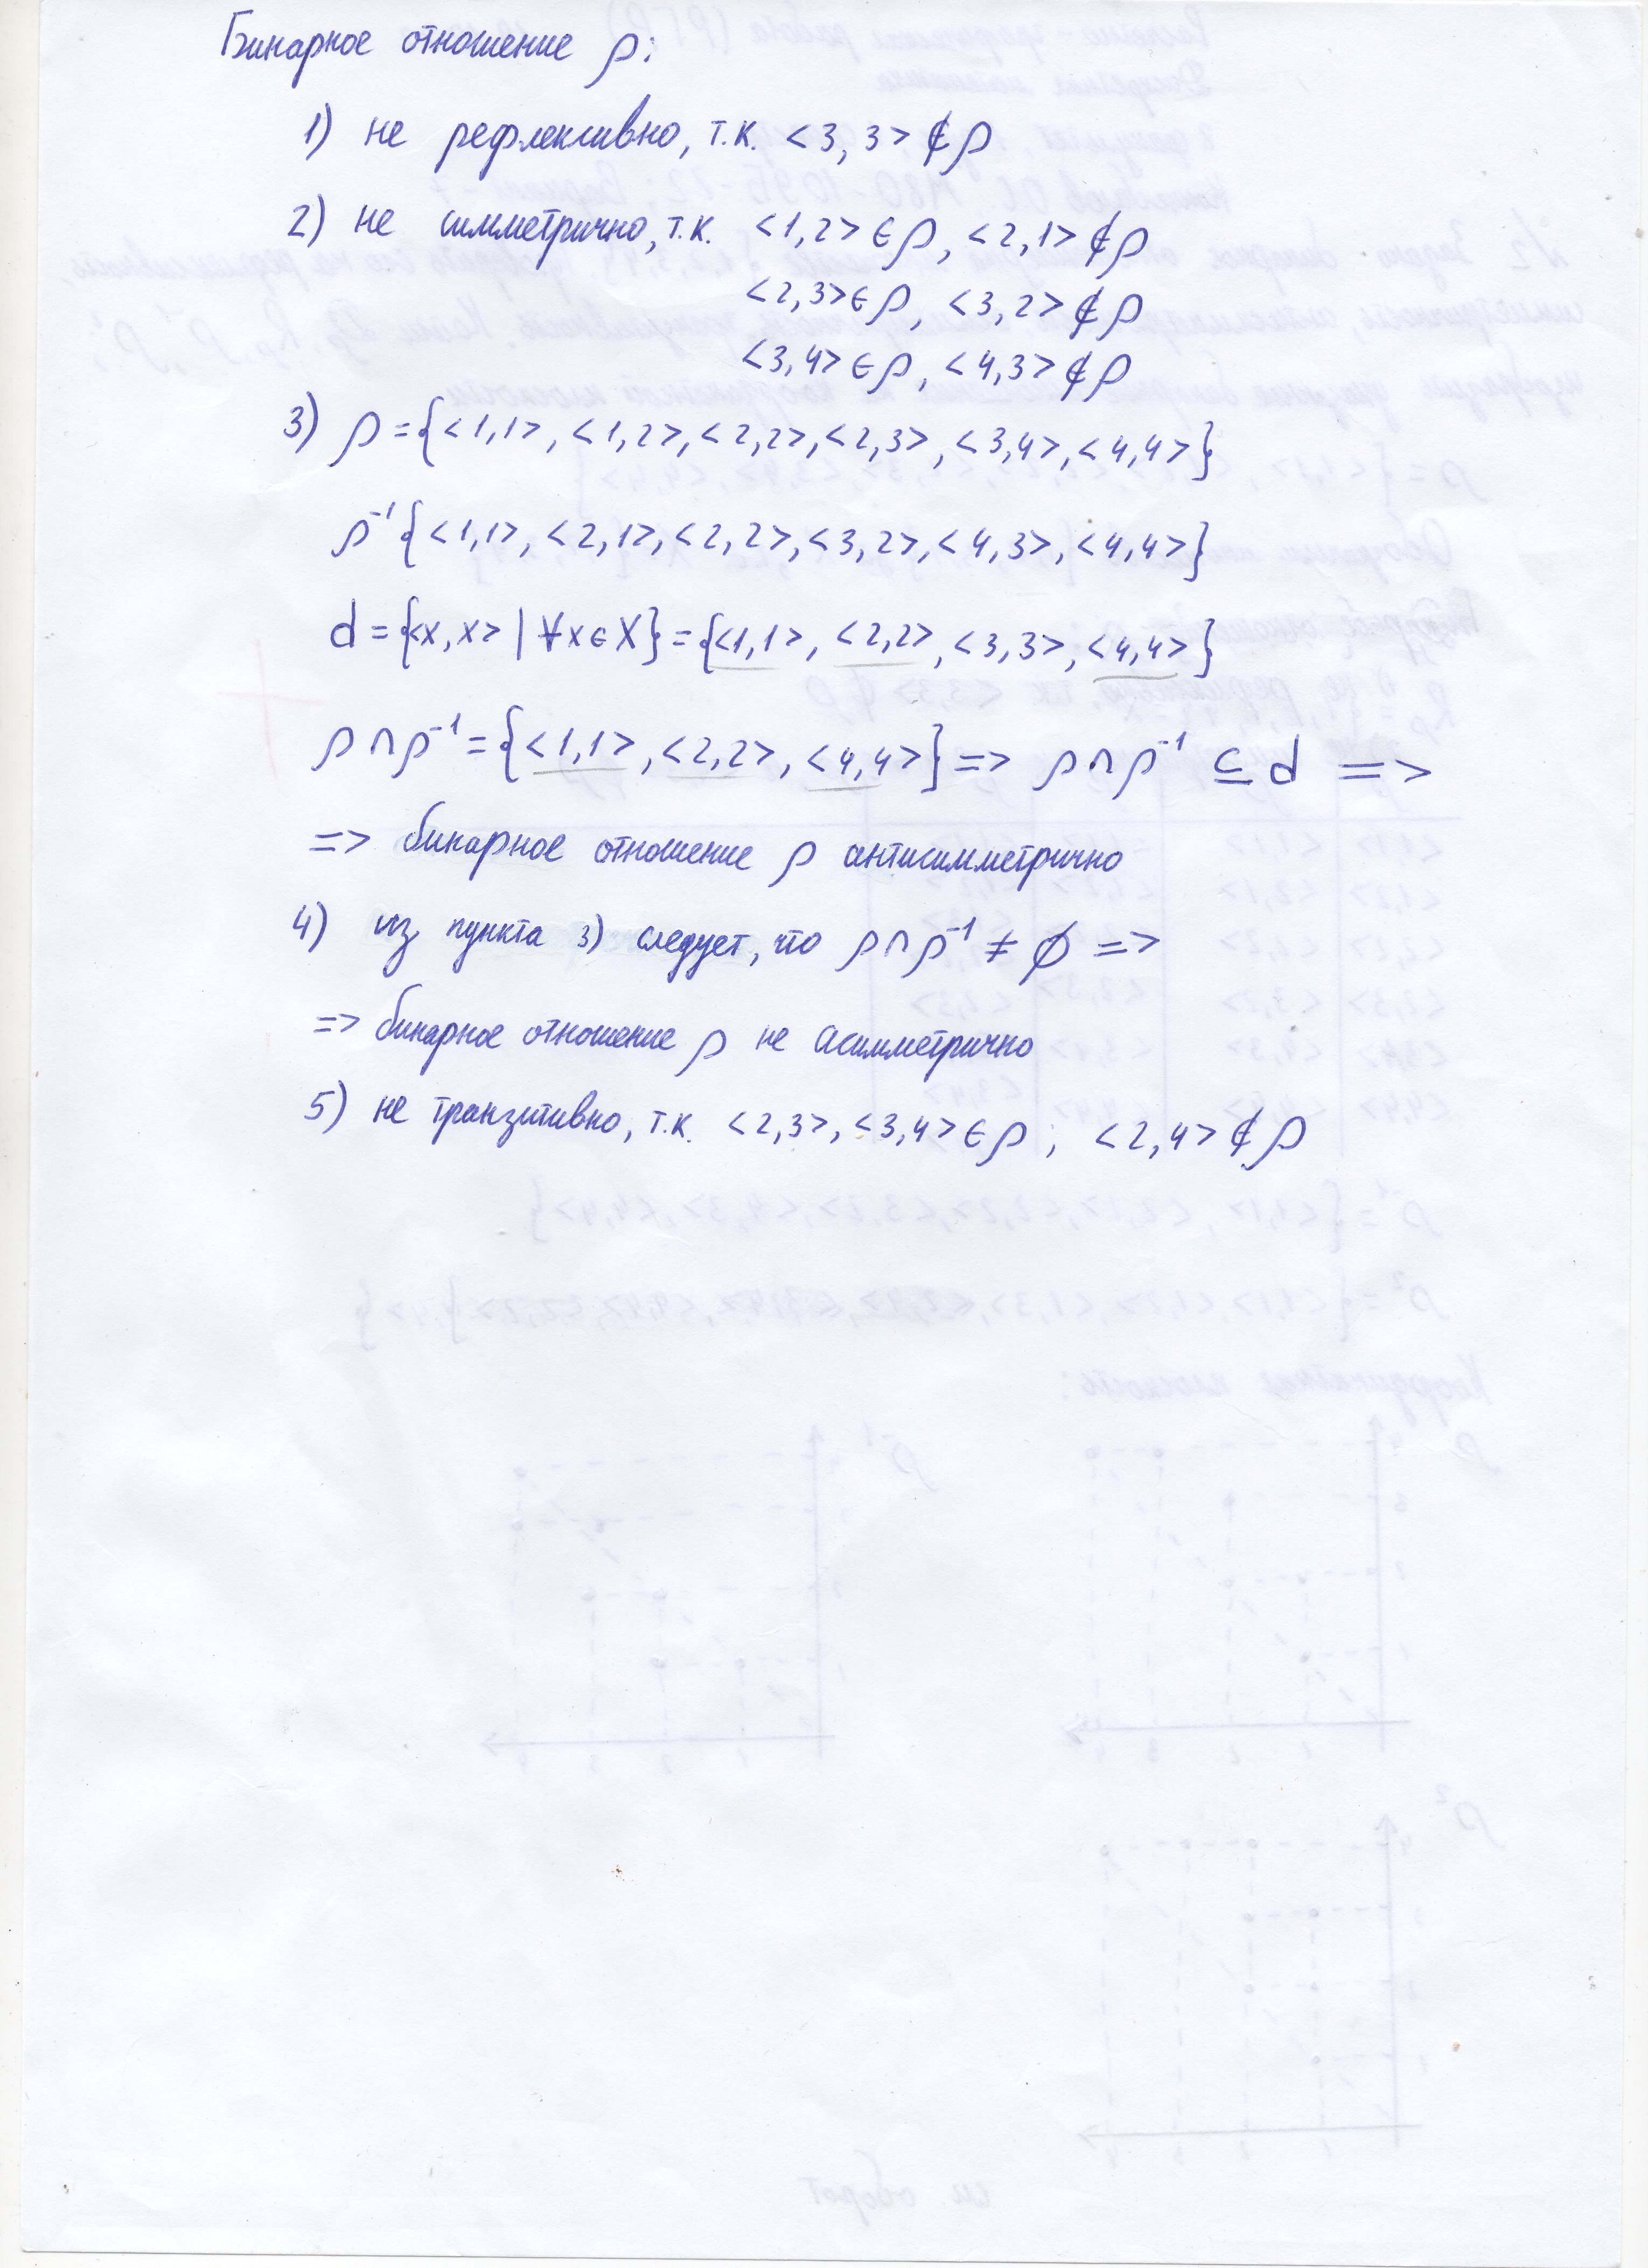 Бинарное отношение ρ:
1) не рефлексивно, т.к. <3,3> ∉ ρ
2) не симметрично, т.к. <1,2> ∈ ρ, <2,1> ∉ ρ
<2,3> ∈ ρ, <3,2> ∉ ρ
<3,4> ∈ ρ, <4,3> ∉ ρ
3) ρ = {<1,1>, <1,2>, <2,2>, <2,3>, <3,4>, <4,4>}
ρ⁻¹ {<1,1>, <2,1>, <2,2>, <3,2>, <4,3>, <4,4>}
d = {<x,x> | ∀x ∈ X} = {<1,1>, <2,2>, <3,3>, <4,4>}
ρ ∩ ρ⁻¹ = {<1,1>, <2,2>, <4,4>} => ρ ∩ ρ⁻¹ ⊆ d =>
=> бинарное отношение ρ антисимметрично
4) из пункта 3) следует, что ρ ∩ ρ⁻¹ ≠ ∅ =>
=> бинарное отношение ρ не асимметрично
5) не транзитивно, т.к. <2,3>, <3,4> ∈ ρ ; <2,4> ∉ ρ